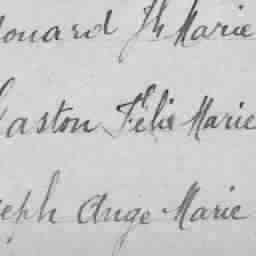 douard Th Marie
Gaston Félix Marie
seph Ange Marie